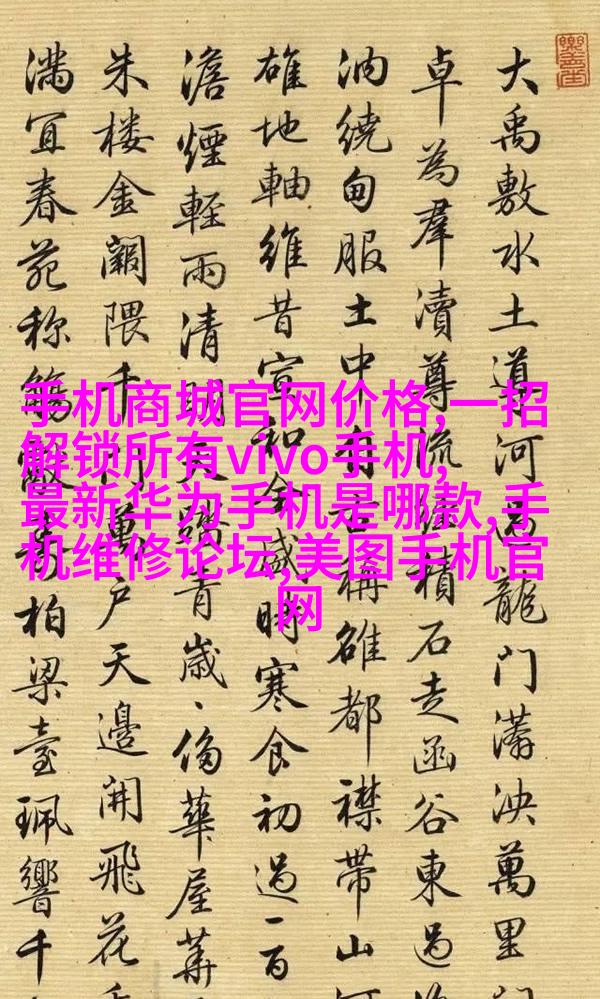 手机商城官网价格,一招
解锁所有vivo手机,
最新华为手机是哪款,手
机维修论坛,美图手机官
网
大禹敷水土導河龍門泱萬里
卓為羣瀆尊流積石走函谷東過
洄繞甸服土中有古稱雄都襟帶山
雄地軸維昔宣和全盛時寒食初過一百
澹煙輕雨清天踏青歲華屋
朱樓金闕隈千門萬戶天邊開飛花
滿宜春苑称觴獻壽柏梁臺珮響千